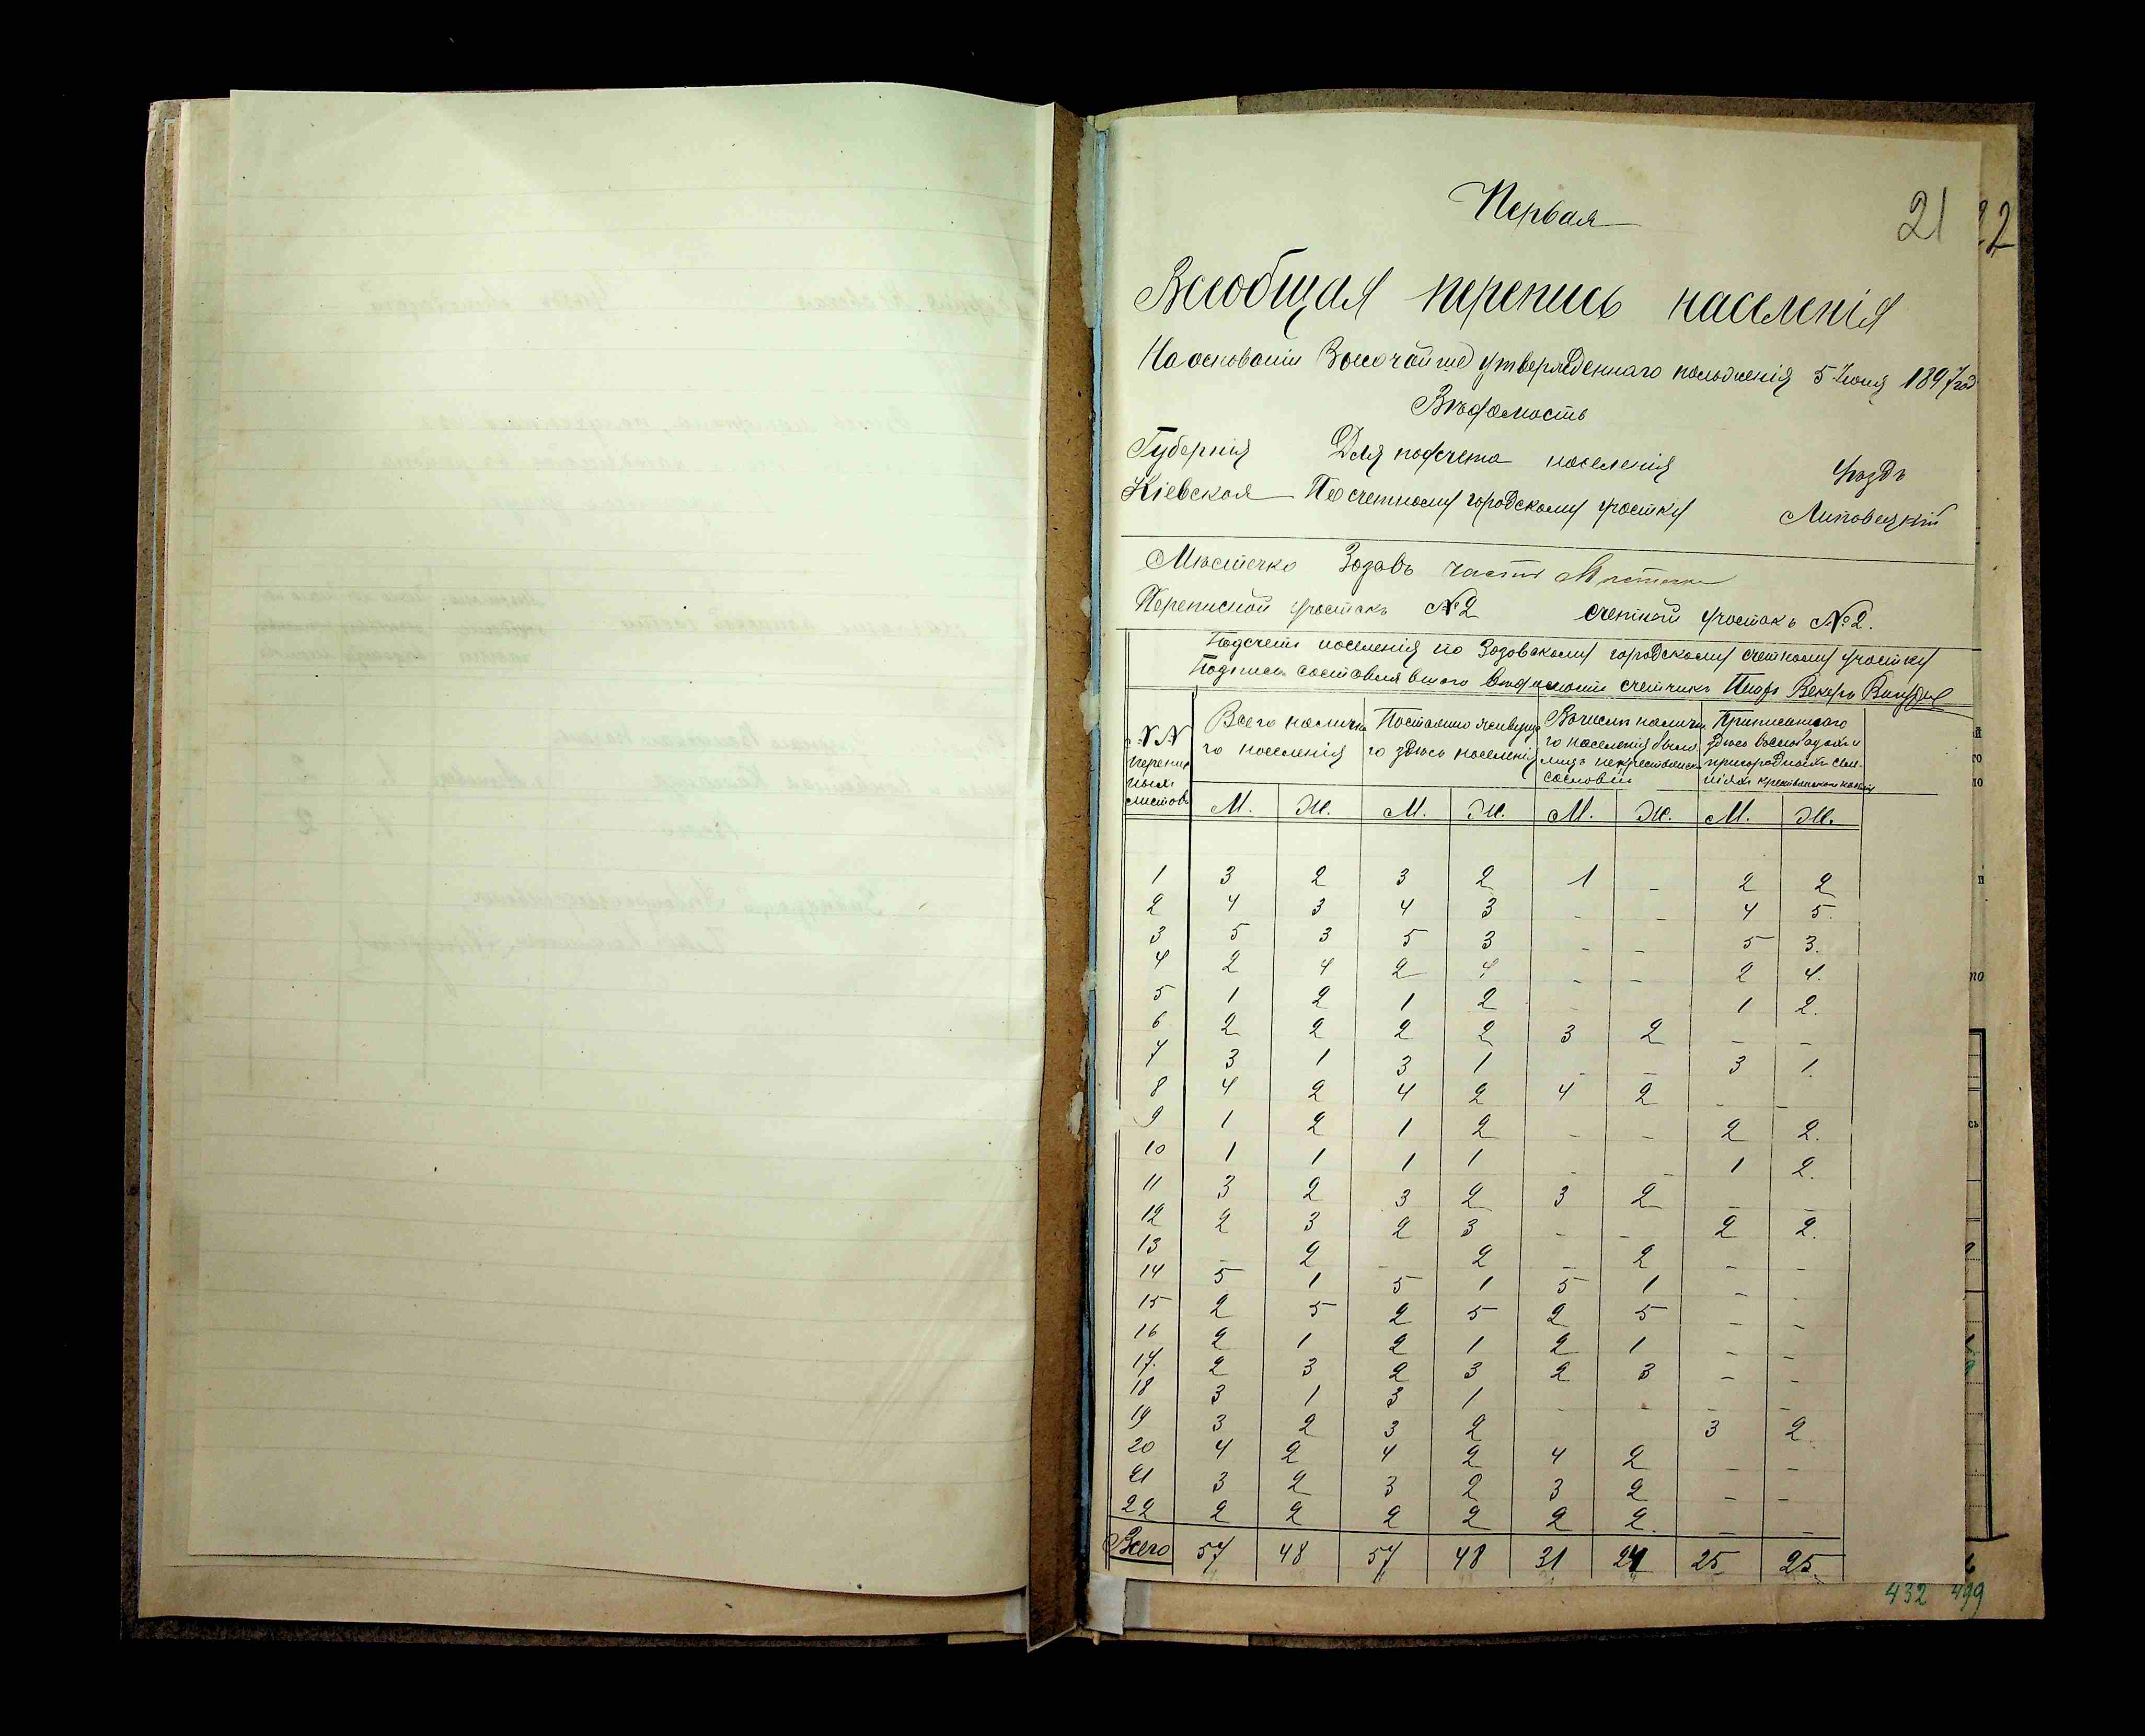 Первая
21
22
Всеобщая перепись населенія
На основаніи Высочайше утвержденнаго положенія 5 Іюня 1897 год
Вѣдомость
Губернія Для подсчета населенія Уѣздъ
Кіевская По счетному городскому участку Липовецкій
Мѣстечко Зозовъ часть
Переписной участокъ №2 счетный участокъ №2.
Подсчетъ населенія по Зозовскому городскому счетному участку
Подпись составлявшаго вѣдомость счетчика
№№ переписныхъ листовъ
Всего налична го населенія
Постоянно живуща го здѣсь населенія
Въ числѣ наличн го населенія было лицъ некрестьянск сословій
Приписаннаго здѣсь
М. Ж. М. Ж. М. Ж. М. Ж.
1 3 2 3 2 1 - 2 2
2 4 3 4 3 - - 4 5.
3 5 3 5 3 - - 5 3.
4 2 4 2 4 - - 2 4.
5 1 2 1 2 - - 1 2.
6 2 2 2 2 3 2 - -
7 3 1 3 1 - - 3 1.
8 4 2 4 2 4 2 - -
9 1 2 1 2 - - 2 2.
10 1 1 1 1 - - 1 2.
11 3 2 3 2 3 2 - -
12 2 3 2 3 - - 2 2.
13 - 2 - 2 - 2 - -
14 5 1 5 1 5 1 - -
15 2 5 2 5 2 5 - -
16 2 1 2 1 2 1 - -
17. 2 3 2 3 2 3 - -
18 3 1 3 1 - - - -
19 3 2 3 2 3 2.
20 4 2 4 2 4 2 - -
21 3 2 3 2 3 2 - -
22 2 2 2 2 2 2. - -
Всего 57 48 57 48 31 24 25 25.
432 499